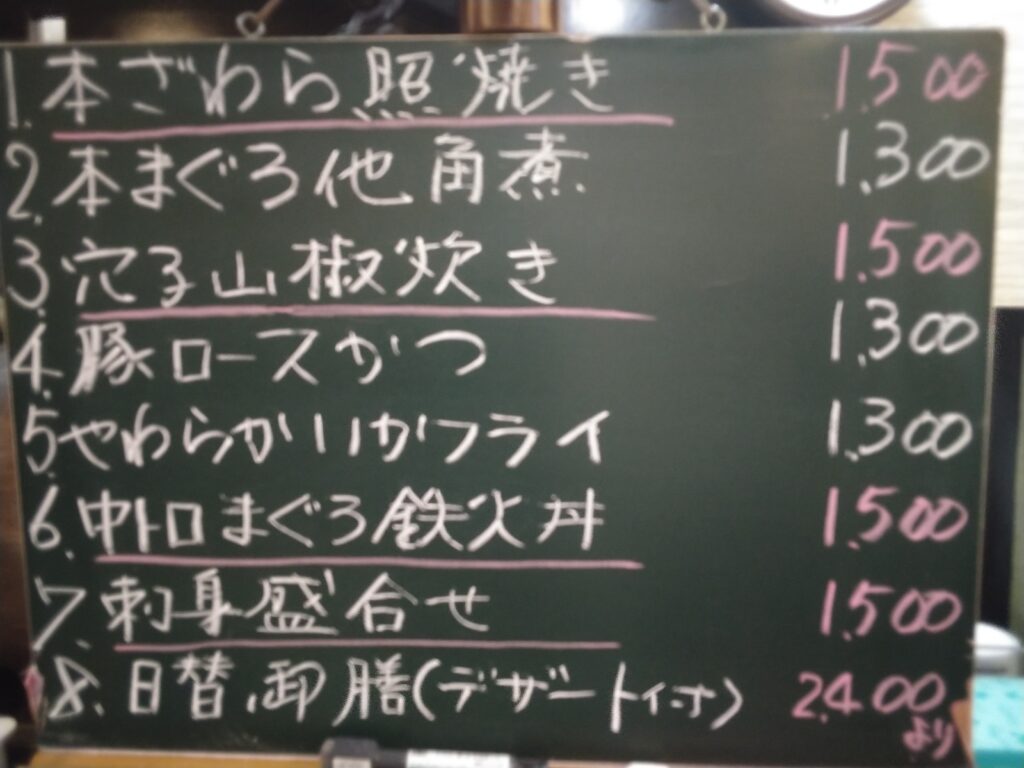 1. 本ざわら照焼き 1.500
2. 本まぐろ他角煮 1.300
3. 穴子山椒炊き 1.500
4. 豚ロースかつ 1.300
5. やわらかいかフライ 1.300
6. 中トロまぐろ鉄火丼 1.500
7. 刺身盛合せ 1.500
8. 日替御膳(デザート付) 2.400
より